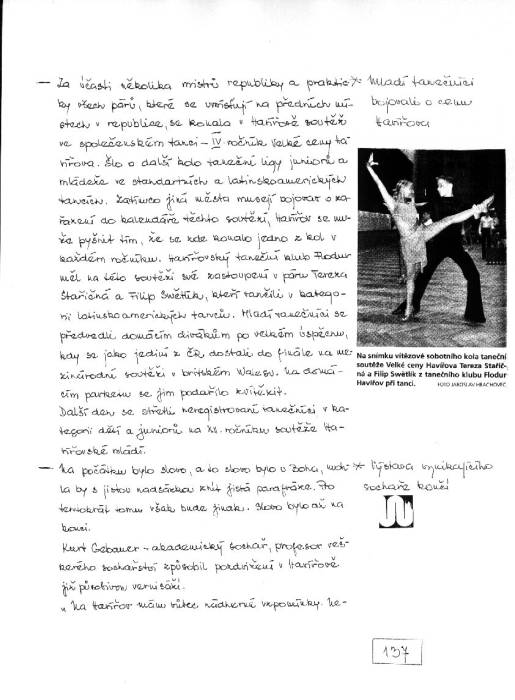 — Za účasti několika mistrů republiky a praktic-
ky všech párů, které se umisťují na předních mí-
stech v republice, se konala v Havířově soutěž
ve společenském tanci – IV ročník Velké ceny Ha-
vířova. Šlo o další kolo taneční ligy juniorů a
mládeže ve standartních a latinskoamerických
tancích. Zatímco jiná města musejí bojovat o za-
řazení do kalendáře těchto soutěží, Havířov se mů-
že pyšnit tím, že se zde konalo jedno z kol v
každém ročníku. Havířovský taneční klub Flodur
měl na této soutěži své zastoupení v páru Tereza
Stařičná a Filip Swětlik, kteří tančili v katego-
rii latinskoamerických tanců. Mladí tanečníci se
předvedli domácím divákům po velkém úspěchu,
kdy se jako jediní z ČR dostali do finále na me-
zinárodní soutěži v britském Walesu. Na domá-
cím parketu se jim podařilo zvítězit.
Další den se střetli neregistrovaní tanečníci v ka-
tegorii dětí a juniorů na XI. ročníku soutěže Ha-
vířovské mládí.
* Mladí tanečníci
bojovali o cenu
Havířova
Na snímku vítězové sobotního kola taneční
soutěže Velké ceny Havířova Tereza Stařič-
ná a Filip Swětlik z tanečního klubu Flodur
Havířov při tanci.
FOTO JAROSLAV HRACHOVEC
— Na počátku bylo slovo, a to slovo bylo u Boha, moh-
la by s jistou nadsázkou znít jistá parafráze. Po
tentokrát tomu však bude jinak. Slovo bylo až na
konci.
Kurt Gebauer – akademický sochař, profesor veš-
kerého sochařství způsobil pozdvižení v Havířově
již působivou vernisáží.
„ Na Havířov mám vůbec nádherné vzpomínky. Ne-
* Výstava vynikajícího
sochaře končí
137